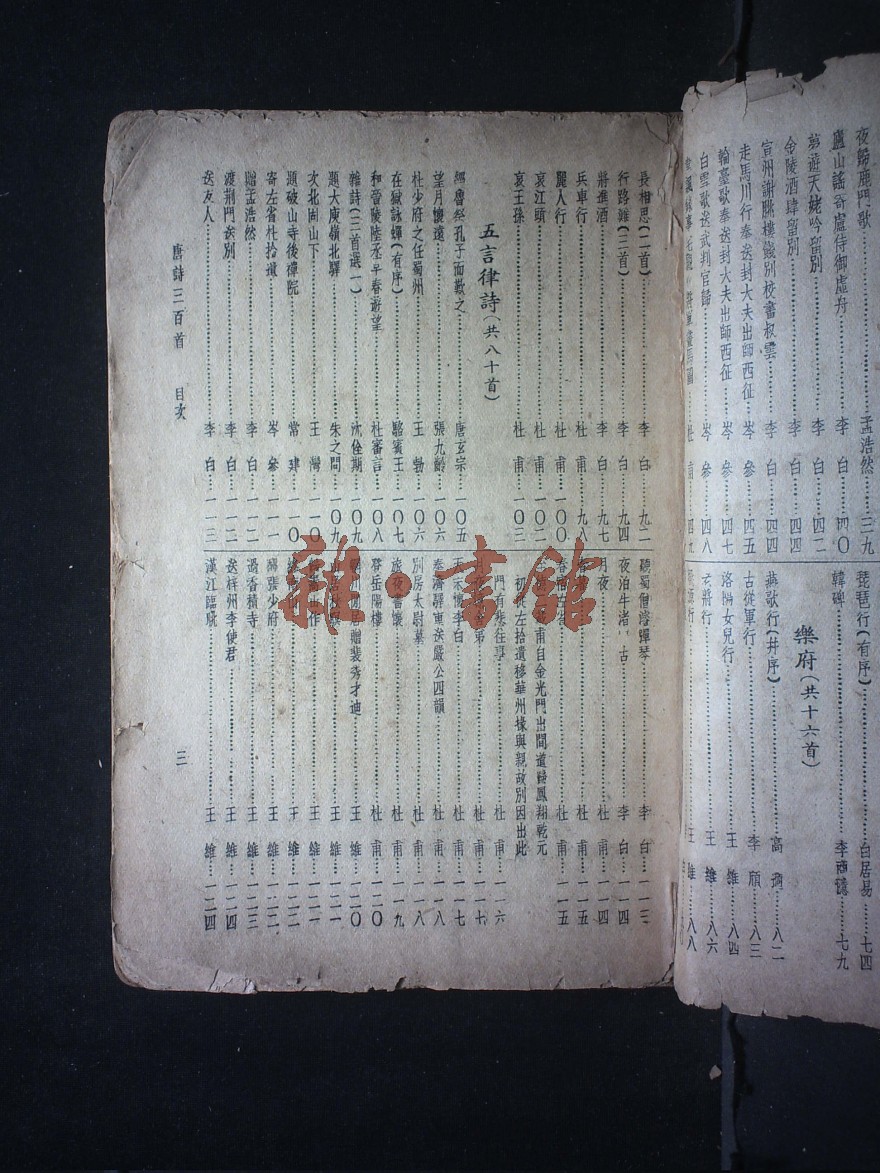 夜歸鹿門歌……孟浩然……三九
廬山謠寄盧侍御虛舟……李白……四0
夢遊天姥吟留別……李白……四二
金陵酒肆留別……李白……四四
宣州謝朓樓餞別校書叔雲……李白……四四
走馬川行奉送封大夫出師西征……岑參……四五
輪臺歌奉送封大夫出師西征……岑參……四七
白雪歌送武判官歸……岑參……四八
琵琶行(有序)……白居易……七四
韓碑……李商隱……七九
樂府(共十六首)
燕歌行(幷序)……高適……八二
古從軍行……李頎……八三
洛陽女兒行……王維……八四
老將行……王維……八六
行……王維……八八
長相思(二首)……李白……九二
行路難(三首)……李白……九四
將進酒……李白……九七
兵車行……杜甫……九八
麗人行……杜甫……一00
哀江頭……杜甫……一0二
哀王孫……杜甫……一0三
五言律詩(共八十首)
經魯祭孔子而歎之……唐玄宗……一0五
望月懷遠……張九齡……一0六
杜少府之任蜀州……王勃……一0六
在獄詠蟬(有序)……駱賓王……一0七
和晉陵陸丞早春遊望……杜審言……一0八
雜詩(三首選一)……沈佺期……一0九
題大庾嶺北驛……朱之問……一0九
次北固山下……王灣……一一0
題破山寺後禪院……常建……一一0
寄左省杜拾遺……岑參……一一一
贈孟浩然……李白……一一二
渡荆門送別……李白……一一二
送友人……李白……一一三
聽蜀僧濬彈琴……李白……一一三
夜泊牛渚 古……李白……一一四
月夜……杜甫……一一四
春……杜甫……一一五
春宿左省……杜甫……一一五
甫自金光門出間道歸鳳翔乾元
初從左拾遺移華州掾與親故別因出此
門有悲往事……杜甫……一一六
月夜 弟……杜甫……一一七
天末懷李白……杜甫……一一七
奉濟驛重送嚴公四韻……杜甫……一一八
別房太尉墓……杜甫……一一八
旅夜書懷……杜甫……一一九
登岳陽樓……杜甫……一二0
輞川閒居贈裴秀才迪……王維……一二0
山居秋暝……王維……一二一
作……王維……一二一
終南……王維……一二二
酬張少府……王維……一二二
過香積寺……王維……一二三
送梓州李使君……王維……一二四
漢江臨眺……王維……一二四
唐詩三百首 目次
三
雜·書館